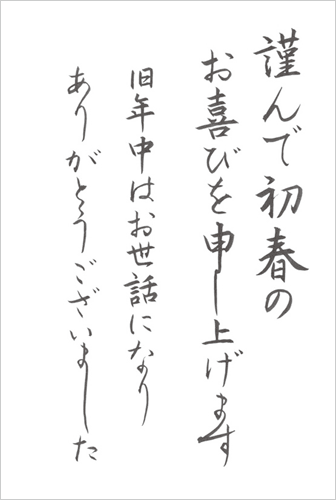 謹んで初春の
お喜びを申し上げます
旧年中はお世話になり
ありがとうございました